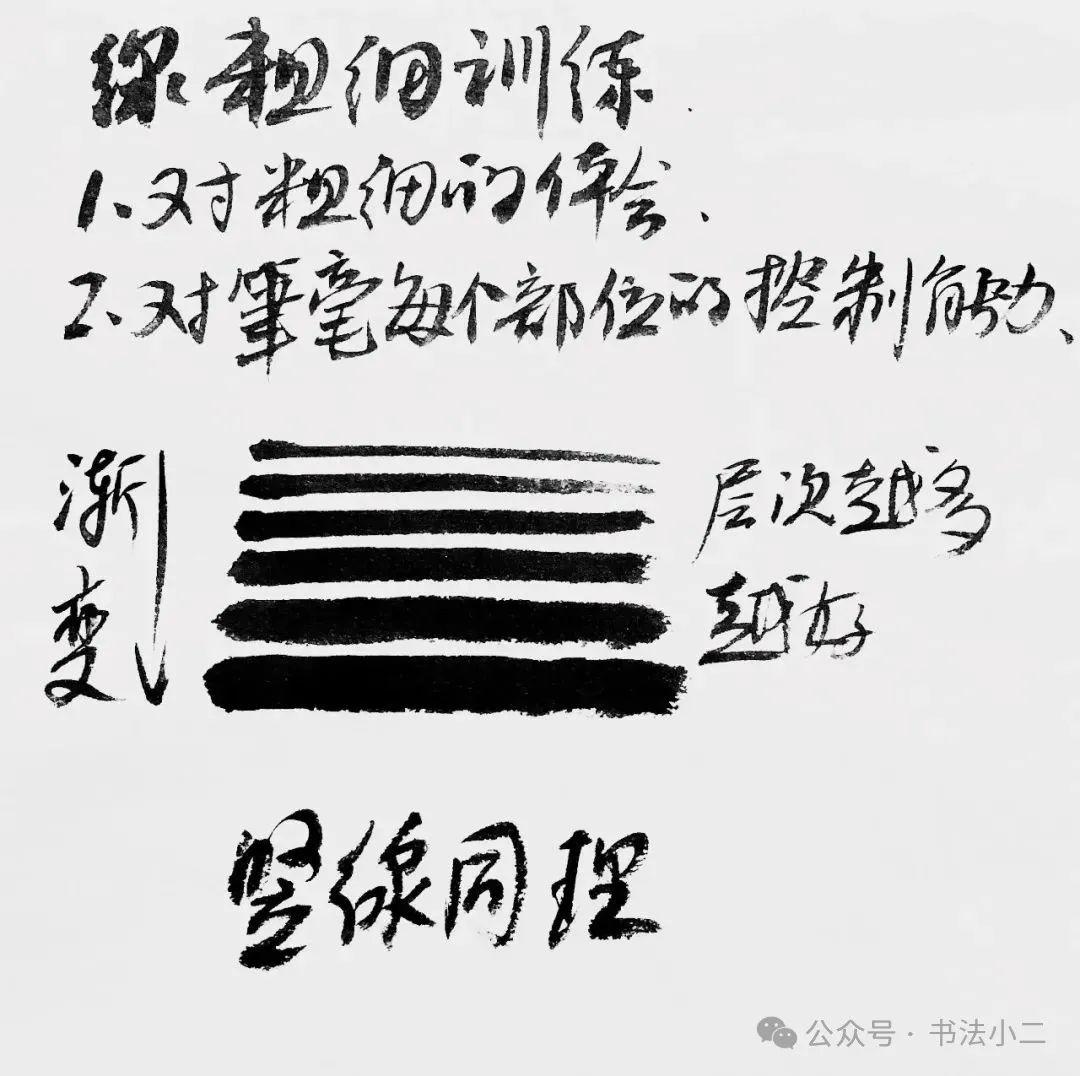 線粗细训练.
1、对粗细的体会、
2、对筆毫每个部位的控制能力、
渐变
层次越多
越好
竖線同理
公众号·书法小二